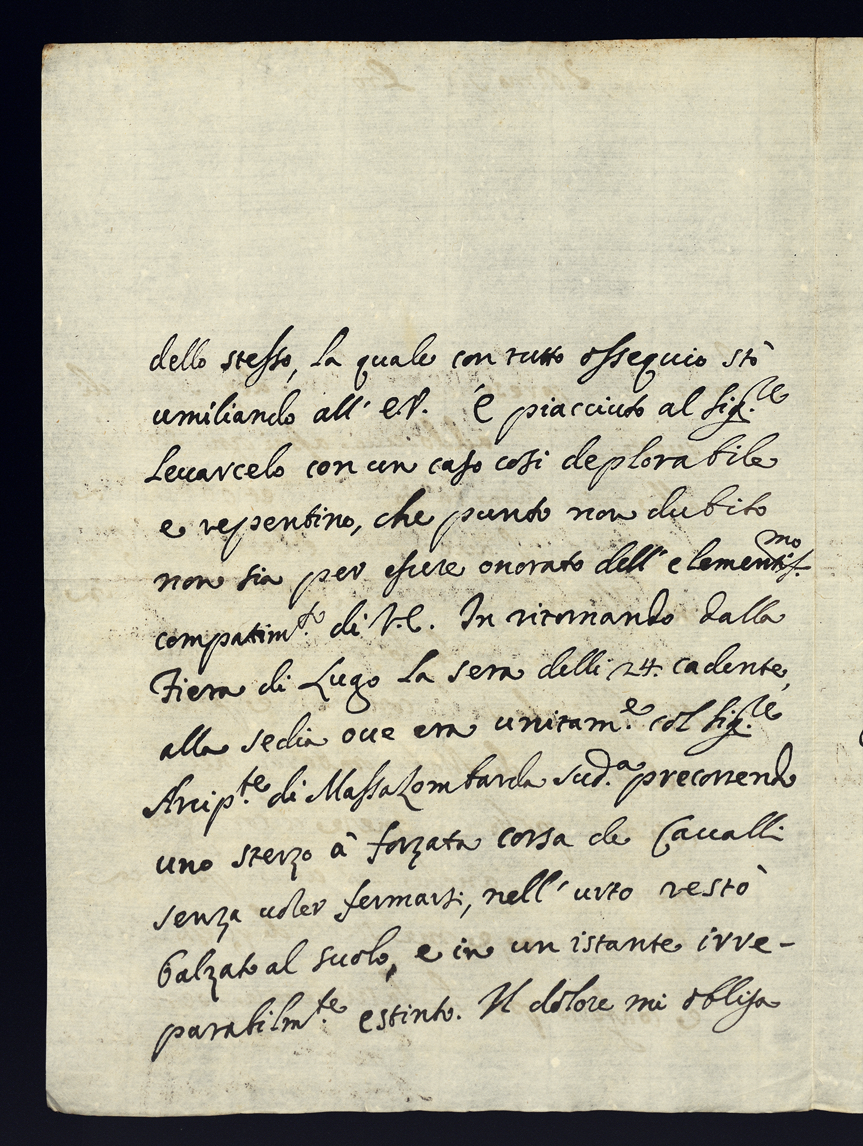 dello stesso, la quale con tutto ossequio stò
umiliando all' EV. È piacciuto al Sig.re
levarcelo con un caso così deplorabile
e repentino, che punto non dubito
non sia per essere onorato dell' clementis.mo
compatim.to di V.E. In ritornando dalla
Fiera di Lugo la sera delli 24. cadente,
alla sedia ove era unitam.e col Sig.re
Arcip.te di Massalombarda sud.a precorrendo
uno sterzo à forzata corsa de Cavalli
senza voler fermarsi, nell' urto restò
balzato al suolo, e in un istante irre-
parabilm.te estinto. Il dolore mi obliga